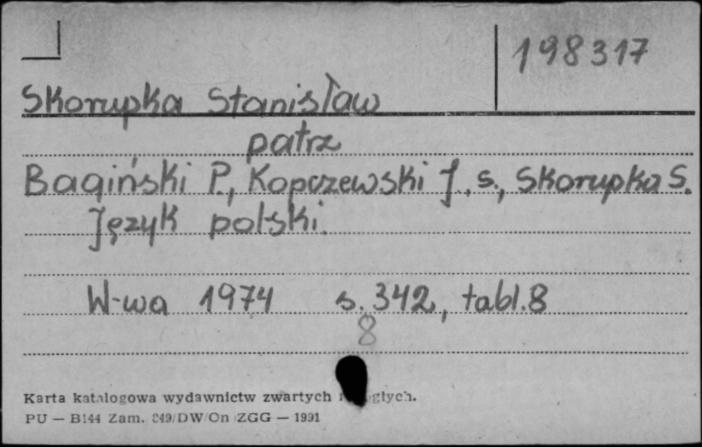 198317
Skorupka Stanisław
patrz
Bagiński P., Kopczewski J. s., Skorupka S.
Język polski.
W-wa 1974 s. 342, tabl. 8
8
Karta katalogowa wydawnictw zwartych
PU — B144 Zam. 249/DW/On ZGG — 1991